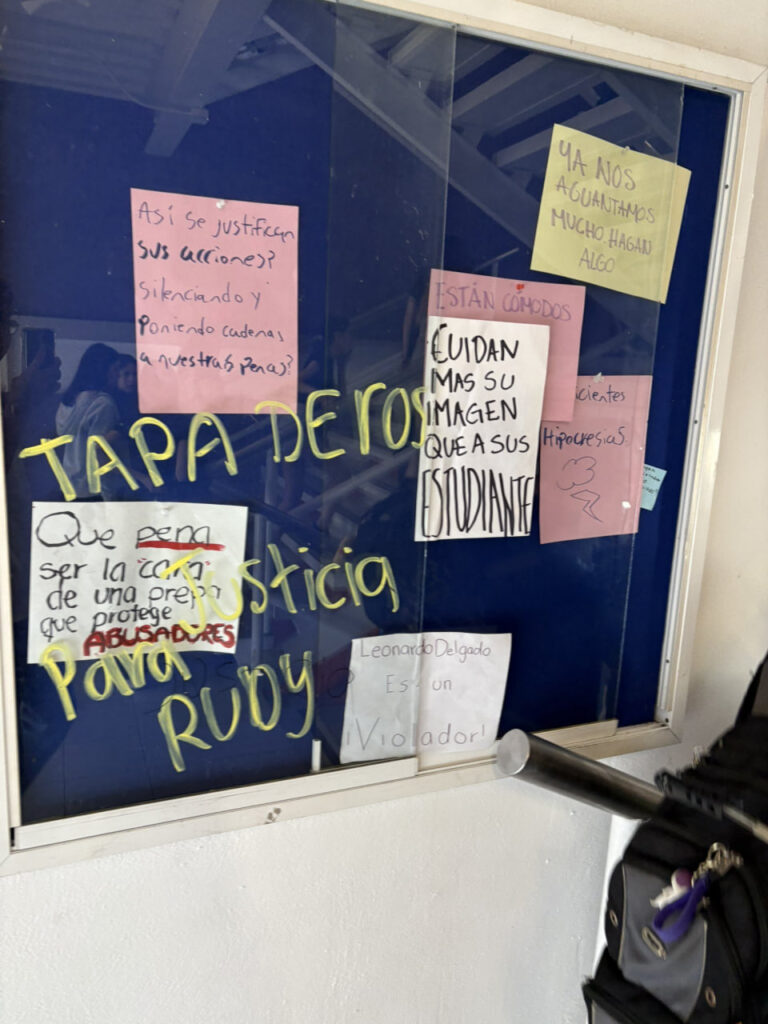 YA NOS
AGUANTAMOS
MUCHO. HAGAN
ALGO
Así se justifican
sus acciones?
Silenciando y
Poniendo cadenas
a nuestra(s pena)s?
ESTÁN CÓMODOS
CUIDAN
MAS SU
IMAGEN
QUE A SUS
ESTUDIANTE
Hipocresias
TAPADEROS
Que pena
ser la "cara"
de una prepa
que protege
ABUSADORES
Justicia
Para
RUDY
Leonardo Delgado
Es un
¡Violador!